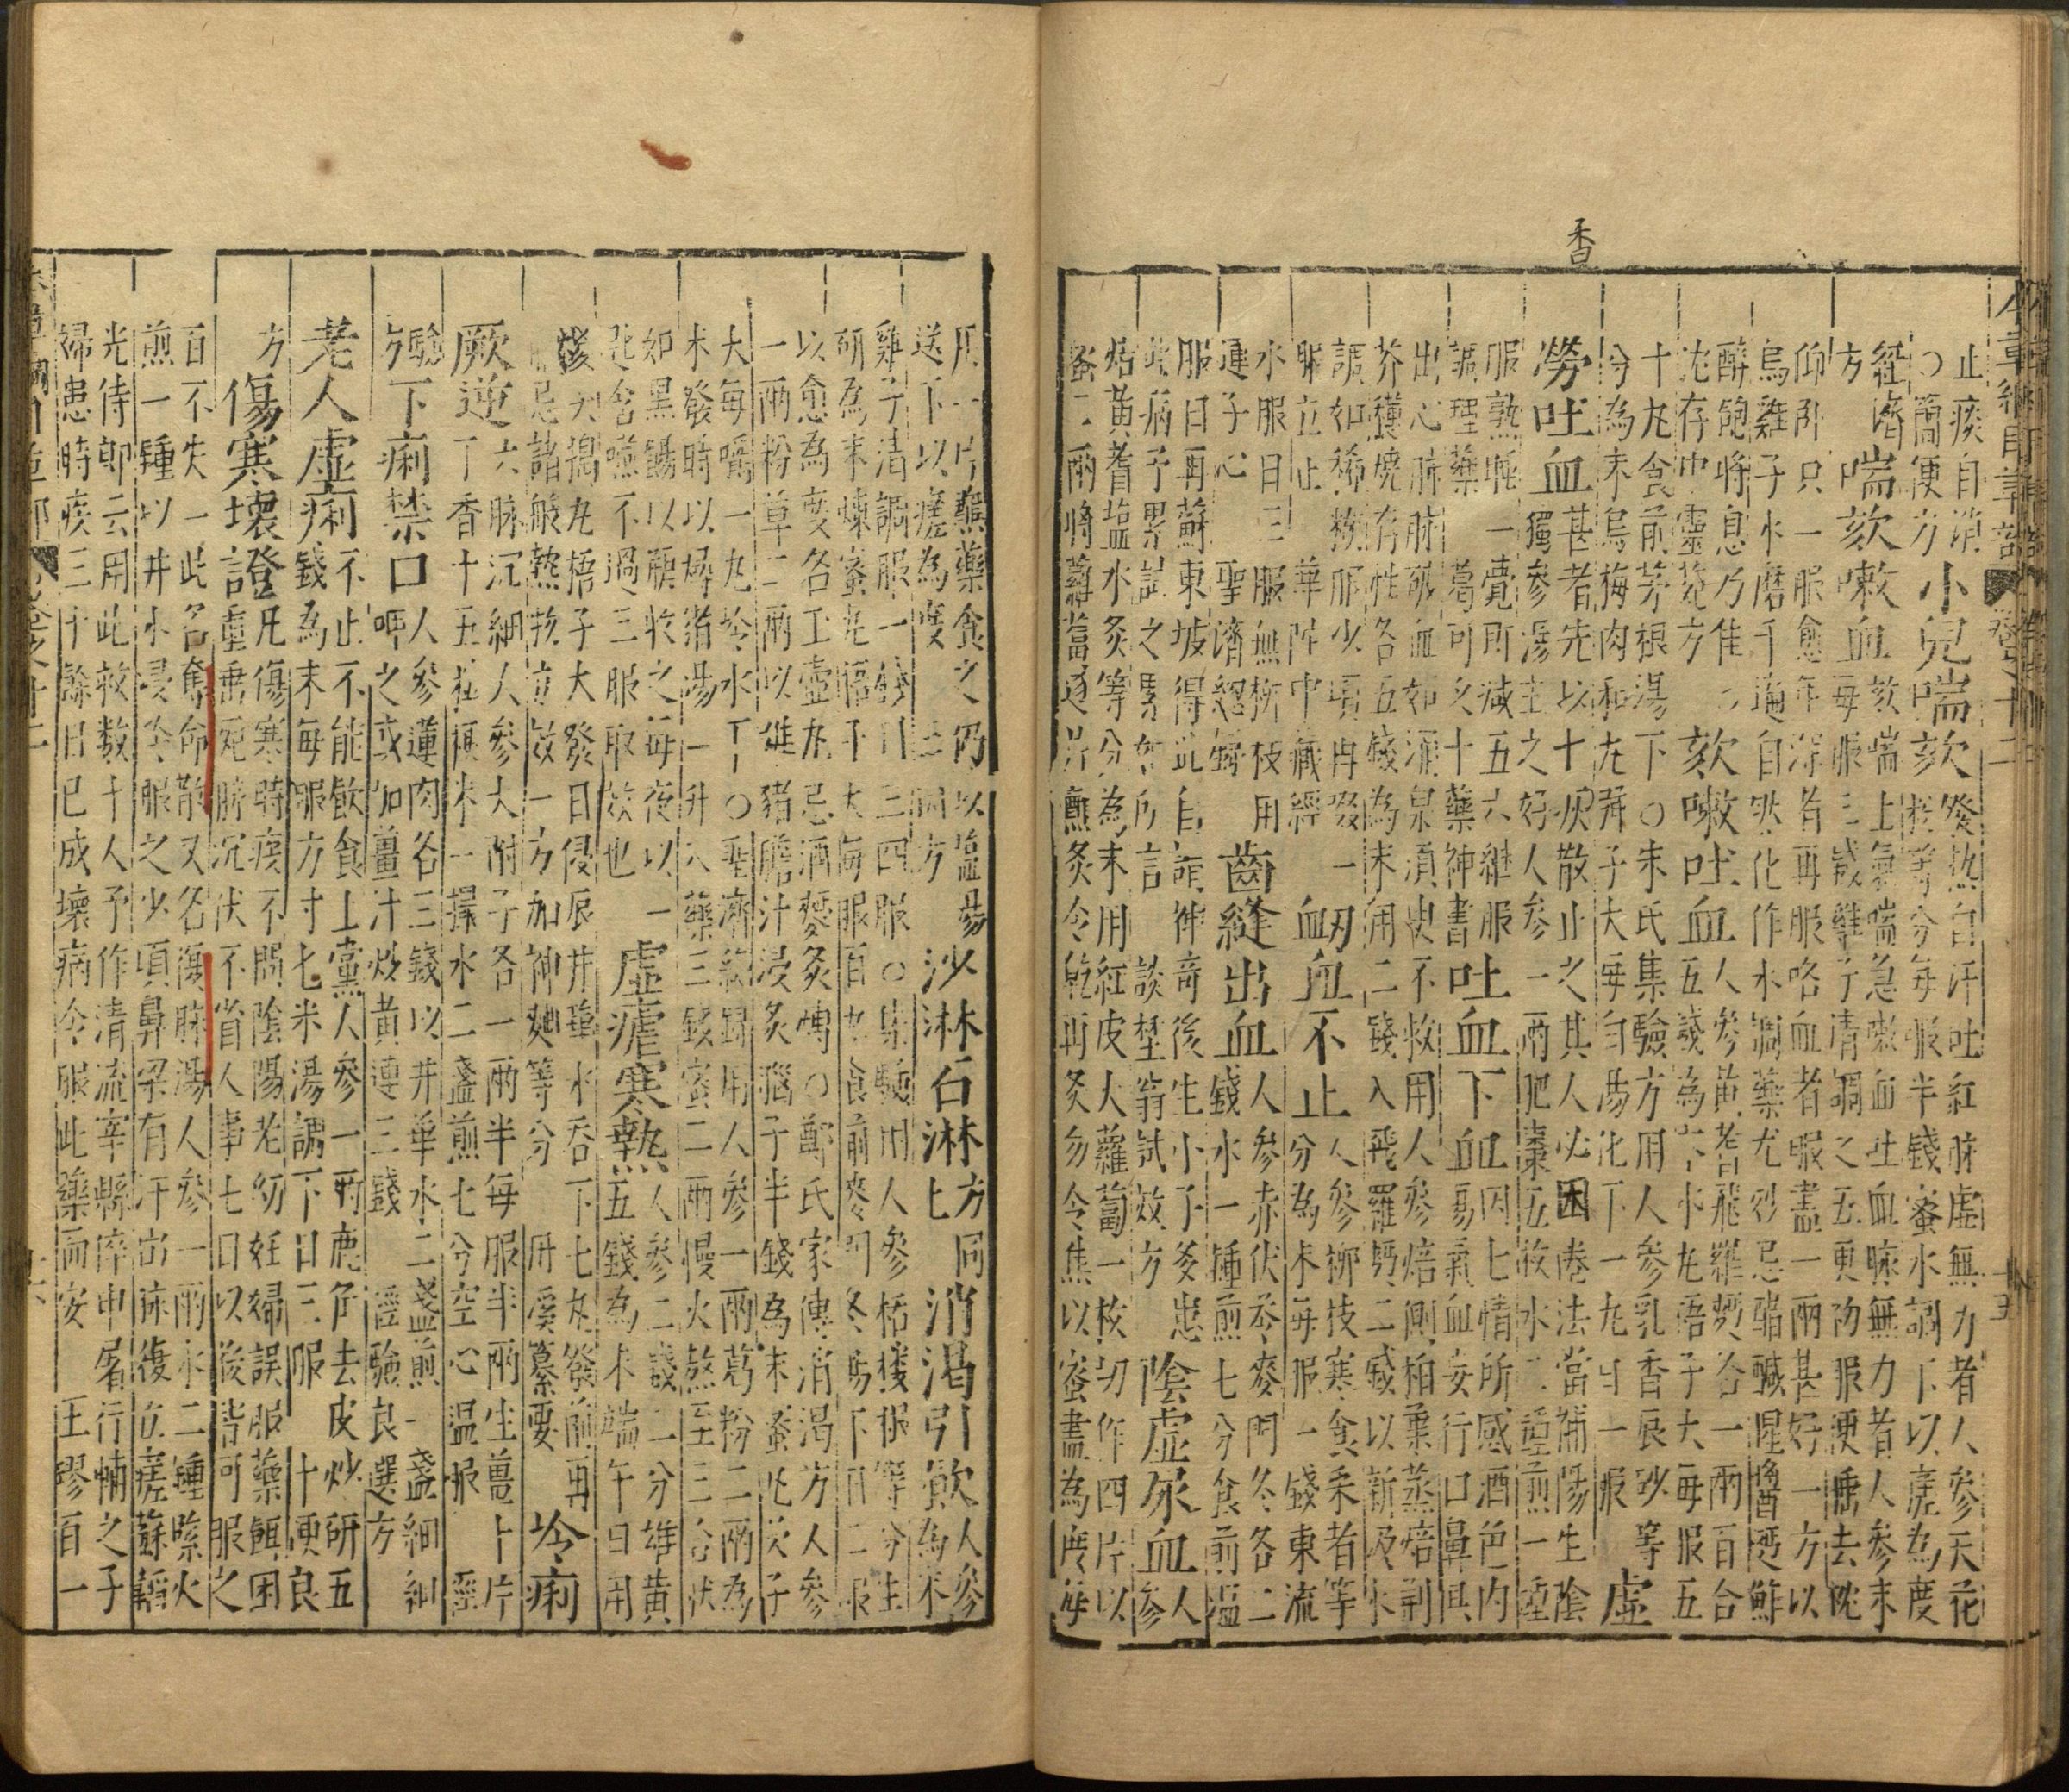 本草綱目草部 卷之十二 十五
香
止痰自消○簡便方 小兒喘欬 發熱自汗吐紅脉虛無力者人參天花粉等分每服半錢蜜水調下以瘥為度
經濟方 喘欬嗽血 欬喘上氣喘急嗽血吐血脉無力者人參末每服三錢雞子清調之五更初服便睡去枕
仰卧只一服愈年深者再服咯血者服盡一兩甚好一方以烏雞子水磨千遍自然化作水調藥尤妙忌醋鹹腥醬麪鮓
醉飽將息乃佳 沈存中靈苑方 欬嗽吐血 人參黃耆飛羅麪各一兩百合五錢為末水丸梧子大每服五
十丸食前茅根湯下○朱氏集驗方用人參乳香辰砂等分為末烏梅肉和丸彈子大每白湯化下一丸日一服 虛
勞吐血 甚者先以十灰散止之其人必困倦法當補陽生陰獨參湯主之好人參一兩肥棗五枚水二鍾煎一鍾
服熟睡一覺即減五六繼服調理藥 葛可久十藥神書 吐血下血 因七情所感酒色內傷氣血妄行口鼻俱
出心肺脉破血如湧泉須臾不救用人參焙側柏葉蒸焙荆芥穗燒存性各五錢為末用二錢入飛羅麪二錢以新汲水
調如稀糊服少頃再啜一服立止 華陀中藏經 衂血不止 人參柳枝寒食采者等分為末每服一錢東流
水服日三服無柳枝用蓮子心 聖濟總録 齒縫出血 人參赤伏苓麥門冬各二錢水一鍾煎七分食前温
服日再蘇東坡得此自謂神奇後生小子多患此病予累試之累如所言 談埜翁試效方 陰虛尿血 人參
焙黃耆鹽水炙等分為末用紅皮大蘿蔔一枚切作四片以蜜二兩將蘿蔔逐片蘸炙令乾再炙勿令焦以蜜盡為度每
用一片蘸藥食之仍以鹽湯送下以瘥為度 三因方 沙淋石淋 方同上 消渴引飲 人參為末
雞子清調服一錢日三四服○集驗用人參栝樓根等分生研為末煉蜜丸梧子大每服百丸食前麥門冬湯下日二服
以愈為度名玉壺丸忌酒麪炙煿○鄭氏家傳消渴方人參一兩粉草二兩以雄豬膽汁浸炙腦子半錢為末蜜丸芡子
大每嚼一丸冷水下○聖濟總録用人參一兩葛粉二兩為末發時以燖猪湯一升入藥三錢蜜二兩慢火熬至三合狀
如黑餳以瓶收之每夜以一匙含嚥不過三服取效也 虛瘧寒熱 人參二錢二分雄黃五錢為末端午日用
糉尖搗丸梧子大發日侵晨井華水吞下七丸發前再服忌諸般熱物立效一方加神麯等分 丹溪纂要 冷痢
厥逆 六脉沉細人參大附子各一兩半每服半兩生薑十片丁香十五粒粳米一撮水二盞煎七分空心温服 經
驗方 下痢禁口 人參蓮肉各三錢以井華水二盞煎一盞細細呷之或加薑汁炒黃連三錢 經驗良選方
老人虛痢 不止不能飲食上黨人參一兩鹿角去皮炒研五錢為末每服方寸匕米湯調下日三服 十便良
方 傷寒壞證 凡傷寒時疫不問陰陽老幼妊婦誤服藥餌困重垂死脉沉伏不省人事七日以後皆可服之
百不失一此名奪命散又名復脉湯人參一兩水二鍾緊火煎一鍾以井水浸冷服之少頃鼻梁有汗出脉復立瘥蘇韜
光侍郎云用此救數十人予作清流宰縣倅申屠行輔之子婦患時疫三十餘日已成壞病令服此藥而安 王璆百一